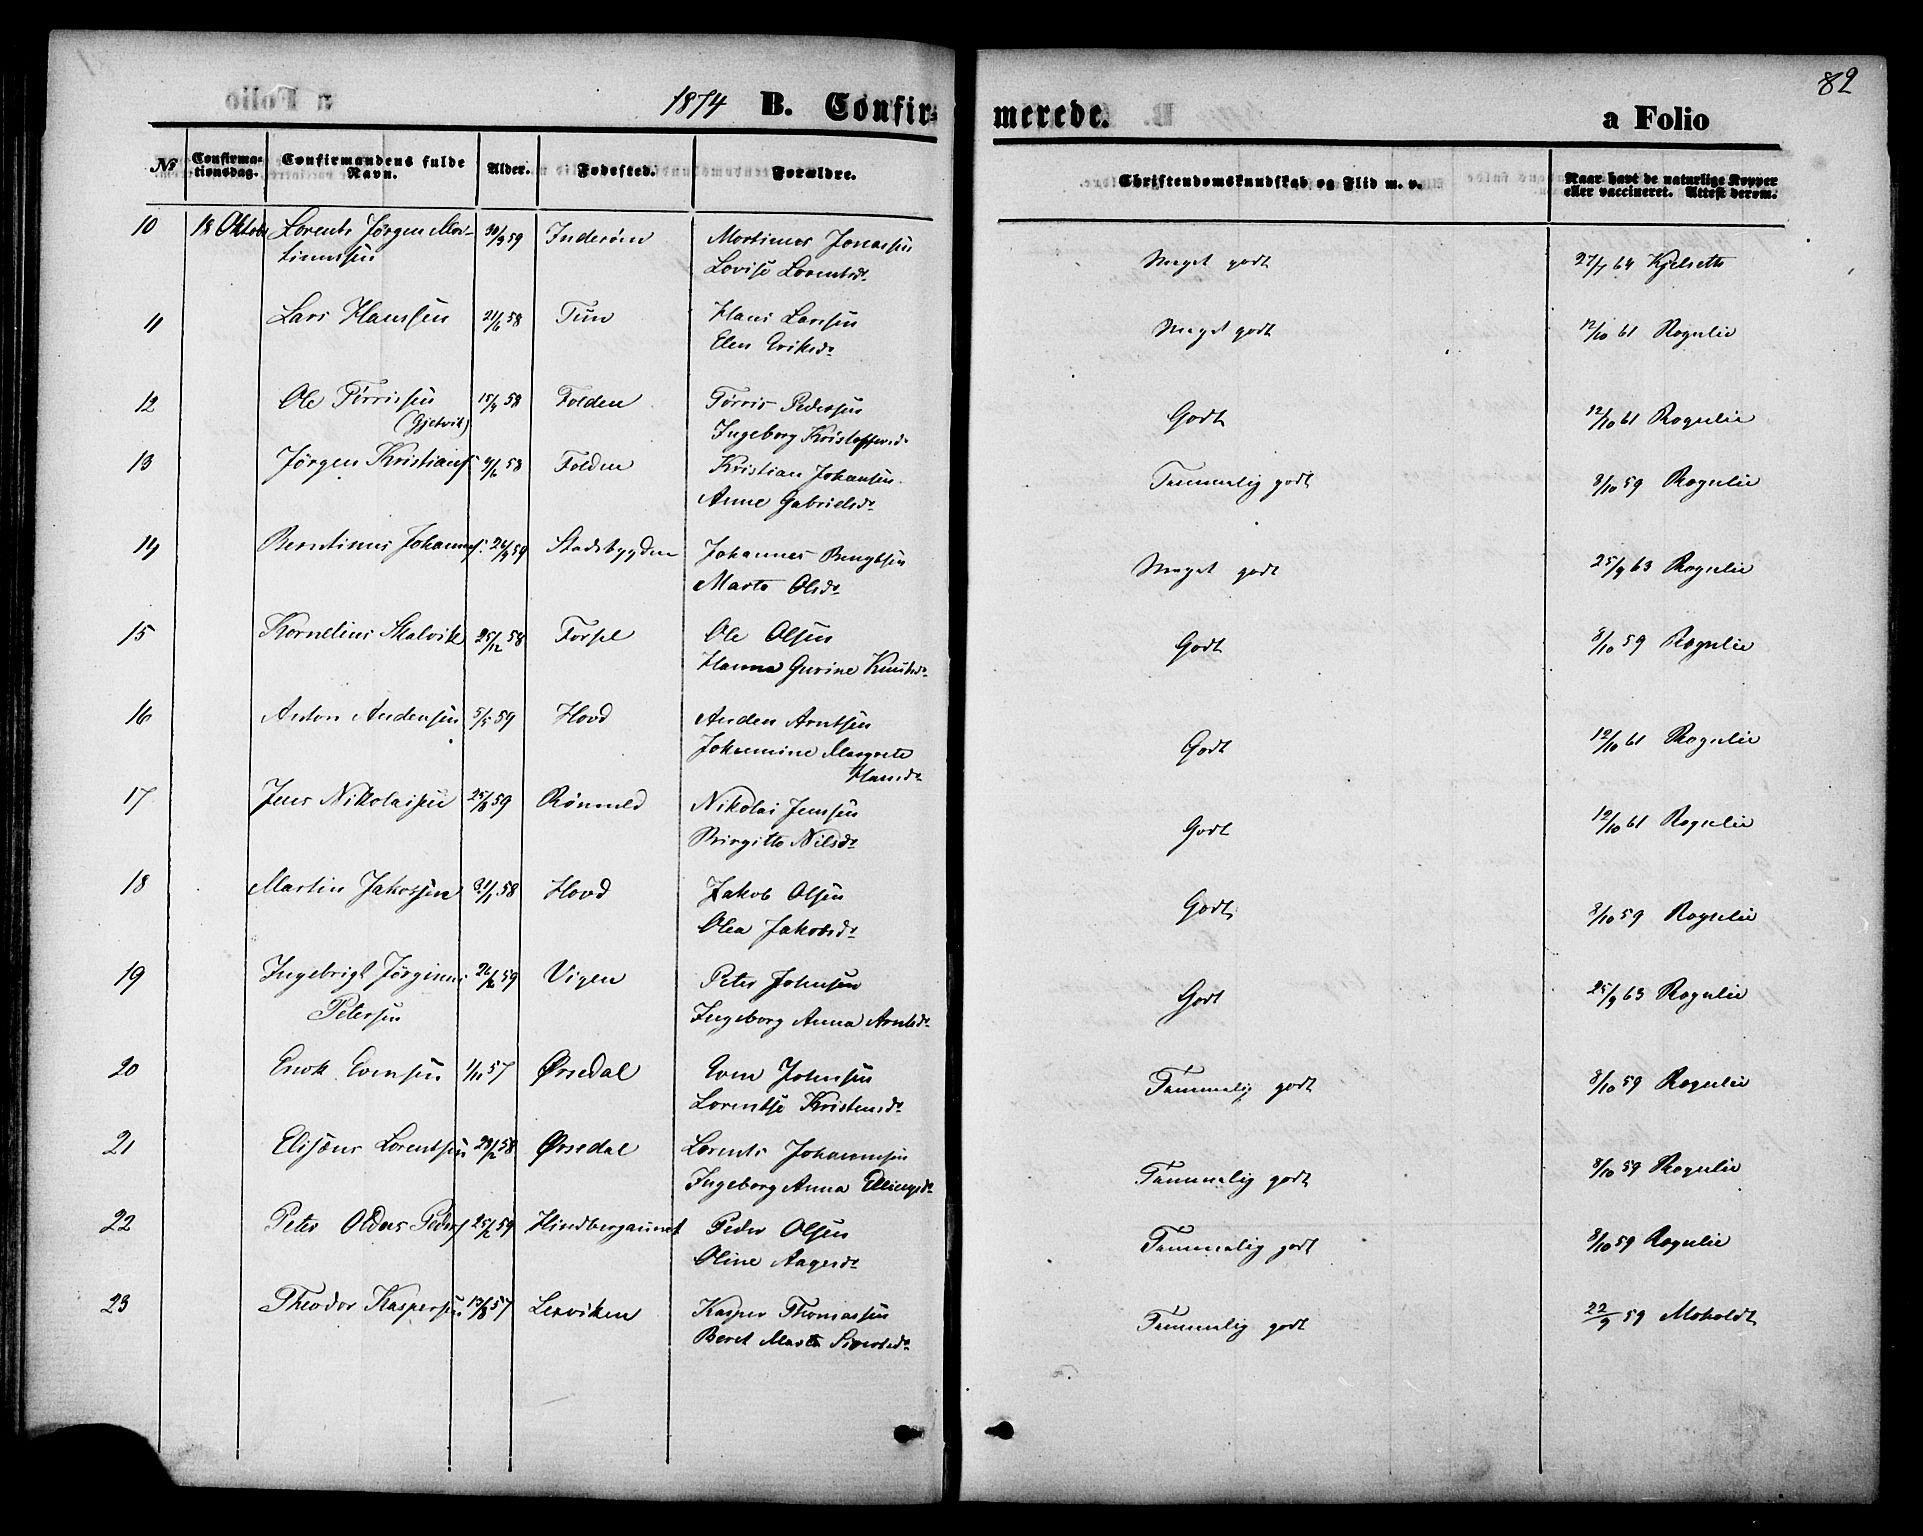 82
1874 B. Confir= merede. a Folio
№ Confirma-tionsdag. Confirmandens fulde Navn. Alder. Fødested. Forældre. Christendomskundskab og Flid m. v. Naar havt de naturlige Kopper eller vaccineret. Attest derom.
10 18 Oktob Lorents Jørgen Mor- 30/3 59 Inderøen Mortimer Jonassen Meget godt 27/7 64 Kjelseth
timersen Lovise Lorentsdr
11 Lars Hanssen 21/6 58 Tun Hans Larssen Meget godt 12/10 61 Rognlie
Elen Eriksdr
12 Ole Tørrissen 15/4 58 Folden Tørris Pedersen Godt 12/10 61 Rognlie
(Gjetvik) Ingeborg Kristoffersdr
13 Jørgen Kristians. 58 Folden Kristian Johansen Temmelig godt 8/10 59 Rognlie
Anne Gabrielsdr
14 Berntinus Johannes. 59 Stadsbygden Johannes Bengtsen Meget godt 25/9 63 Rognlie
Marte Olsdr
15 Kornelius Skalvik 25/12 58 Forsel Ole Olsen Godt 8/10 59 Rognlie
Hanna Gurine Knutsdr
16 Anton Andersen 5/5 59 Hovd Anden Arntsen Godt 12/10 61 Rognlie
Johannine Margrete
Hansdr
17 Jens Nikolaisen 25/8 59 Rønneld Nikolai Jensen Godt 12/10 61 Rognlie
Birgitte Nilsdr
18 Martin Jakobsen 31/1 58 Hovd Jakob Olsen Godt 8/10 59 Rognlie
Olea Jakobsdr
19 Ingebrigt Jørginus 59 Vigen Peter Johnsen Godt 25/9 63 Rognlie
Petersen Ingeborg Anna Arntsdr
20 Enok Evensen 1/11 57 Ørsedal Even Johnsen Temmelig godt 8/10 59 Rognlie
Lorentse Kristensdr
21 Elisæus Lorentsen 29/12 58 Ørsedal Lorents Johannesen Temmelig godt 8/10 59 Rognlie
Ingeborg Anna Ellingsdr
22 Peter Oldus Peders 25/2 59 Hindbergaunet Peder Olsen Temmelig godt 8/10 59 Rognlie
Oline Aagesdr
23 Theodor Kaspersen 13/8 57 Lerviken Kasper Thomassen Temmelig godt 22/9 59 Moholdt
Beret Marta Sivertsdr